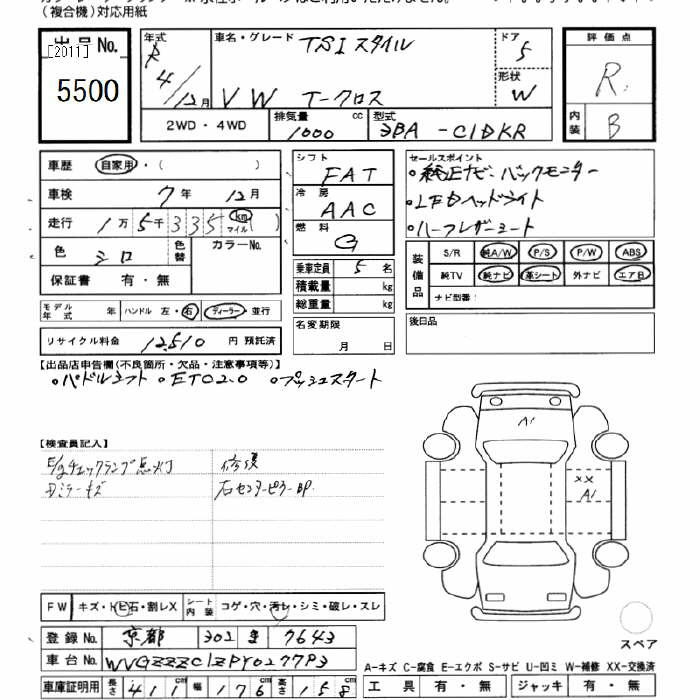 (複合機)対応用紙
出品 No. [2011]
5500
年式 R 4/12月
車名・グレード TSI スタイル
VW T-クロス
ドア 5
形状 W
評価点 R
内装 B
2WD・4WD
排気量 1000 cc
型式 3BA-C1DKR
車歴 自家用・( )
車検 7年 12月
走行 1万5千335 km マイル ( )
色 シロ 色替 カラーNo.
保証書 有・無
モデル年式 年 ハンドル 左・右 ディーラー・並行
リサイクル料金 12510 円 預託済
シフト FAT
冷房 AAC
燃料 G
乗車定員 5 名
積載量 kg
総重量 kg
名変期限 月 日
セールスポイント
・純正ナビ バックモニター
・LEDヘッドライト
・ハーフレザーシート
装備品 S/R 純A/W P/S P/W ABS
純TV 純ナビ 革シート 外ナビ エアB
ナビ型番:
後日品
【出品店申告欄(不良箇所・欠品・注意事項等)】
・パドルシフト ・ETC2.0 ・プッシュスタート
【検査員記入】
E/gチェックランプ点灯 修復
ミラーキズ 右センターピラーBP.
A1
XX
A1
FW キズ・トビ石・割レX シート内装 コゲ・穴・汚レ・シミ・破レ・スレ
登録No. 京都 302 7643
車台No. WVGZZZC1ZPY027793
車庫証明用 長さ 411cm 幅 176cm 高さ 158cm
スペア
A-キズ C-腐食 E-エクボ S-サビ U-凹ミ W-補修 XX-交換済
工具 有・無 ジャッキ 有・無